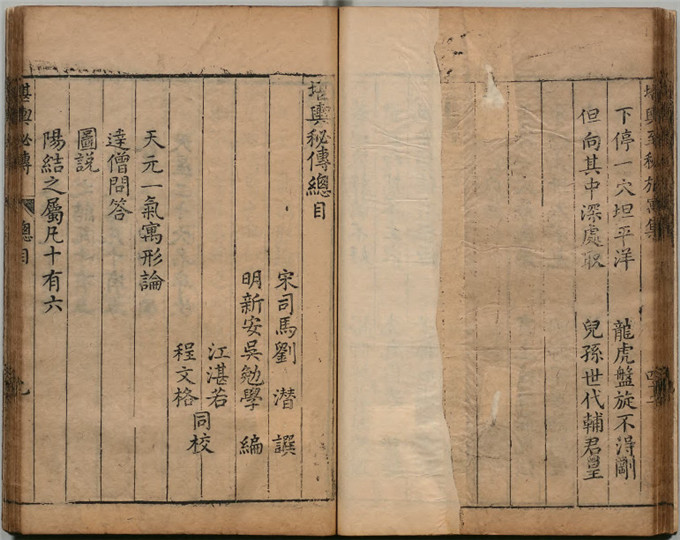 下停一穴坦平洋 龍虎盤旋不得剛
但向其中深處取 兒孫世代輔君皇
堪輿秘傳總目
宋司馬劉潛譔
明新安吳勉學編
江湛若
程文格
同校
天元一氣寓形論
達僧問答
圖說
陽結之屬凡十有六
堪輿秘傳 總目